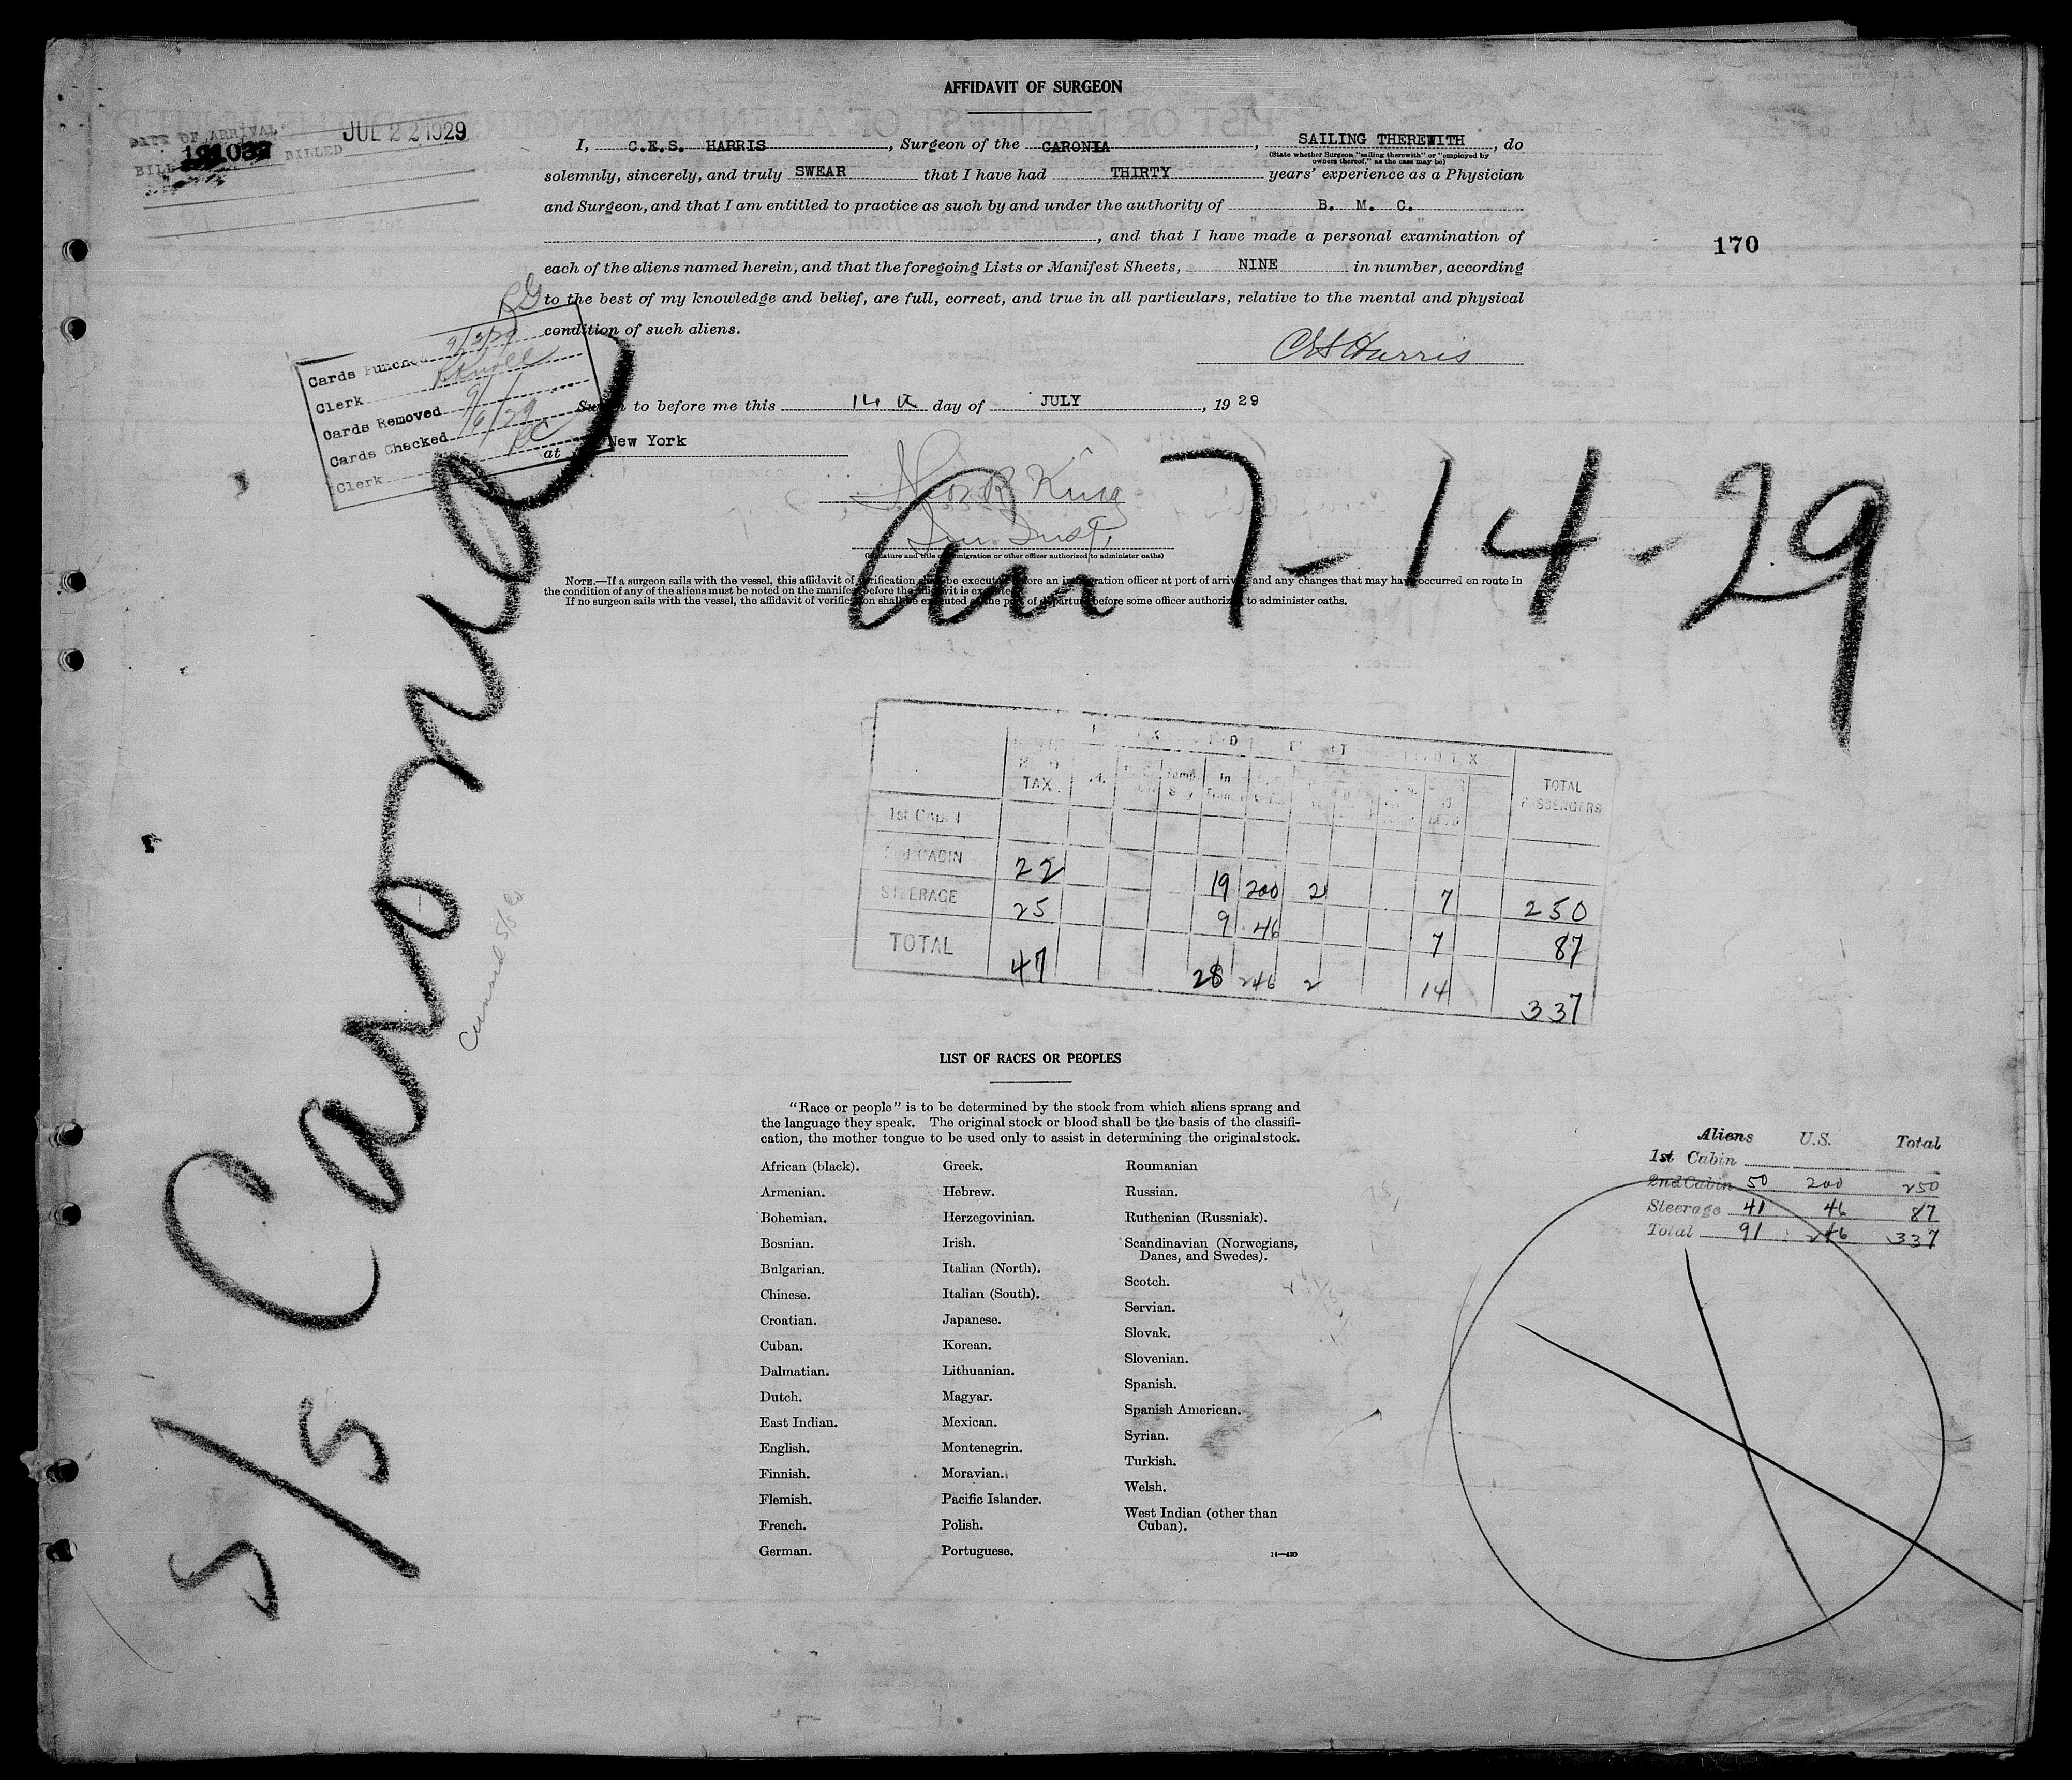 AFFIDAVIT OF SURGEON
DATE OF ARRIVAL
JUL 22 1929
BILL BILLED
I, C.E.S. HARRIS, Surgeon of the CARONIA, SAILING THEREWITH, do
(State whether Surgeon "sailing therewith" or "employed by
owners thereof," as the case may be)
solemnly, sincerely, and truly SWEAR that I have had THIRTY years' experience as a Physician
and Surgeon, and that I am entitled to practice as such by and under the authority of B. M. C.
, and that I have made a personal examination of
170
each of the aliens named herein, and that the foregoing Lists or Manifest Sheets, NINE in number, according
to the best of my knowledge and belief, are full, correct, and true in all particulars, relative to the mental and physical
condition of such aliens.
CES Harris
Cards Punched 9/3/29
Clerk
Cards Removed
Cards Checked 9/6/29
Clerk
to before me this 14 day of JULY, 1929
at New York
King
Imm. Insp.
(Signature and title of immigration or other officer authorized to administer oaths)
Arr 7-14-29
NOTE.—If a surgeon sails with the vessel, this affidavit of verification shall be executed before an immigration officer at port of arrival and any changes that may have occurred on route in
the condition of any of the aliens must be noted on the manifest before the affidavit is executed.
If no surgeon sails with the vessel, the affidavit of verification shall be executed at the port of departure before some officer authorized to administer oaths.
S/S Caronia
Cunard S/S Co
TAX
TOTAL
PASSENGERS
1st CABIN
2nd CABIN 22 19 200 2 7 250
STEERAGE 25 9 46 7 87
TOTAL 47 28 246 2 14 337
LIST OF RACES OR PEOPLES
"Race or people" is to be determined by the stock from which aliens sprang and
the language they speak. The original stock or blood shall be the basis of the classifi-
cation, the mother tongue to be used only to assist in determining the original stock.
African (black).
Armenian.
Bohemian.
Bosnian.
Bulgarian.
Chinese.
Croatian.
Cuban.
Dalmatian.
Dutch.
East Indian.
English.
Finnish.
Flemish.
French.
German.
Greek.
Hebrew.
Herzegovinian.
Irish.
Italian (North).
Italian (South).
Japanese.
Korean.
Lithuanian.
Magyar.
Mexican.
Montenegrin.
Moravian.
Pacific Islander.
Polish.
Portuguese.
Roumanian
Russian.
Ruthenian (Russniak).
Scandinavian (Norwegians,
Danes, and Swedes).
Scotch.
Servian.
Slovak.
Slovenian.
Spanish.
Spanish American.
Syrian.
Turkish.
Welsh.
West Indian (other than
Cuban).
14—430
Aliens U.S. Total
1st Cabin
2nd Cabin 50 200 250
Steerage 41 46 87
Total 91 246 337